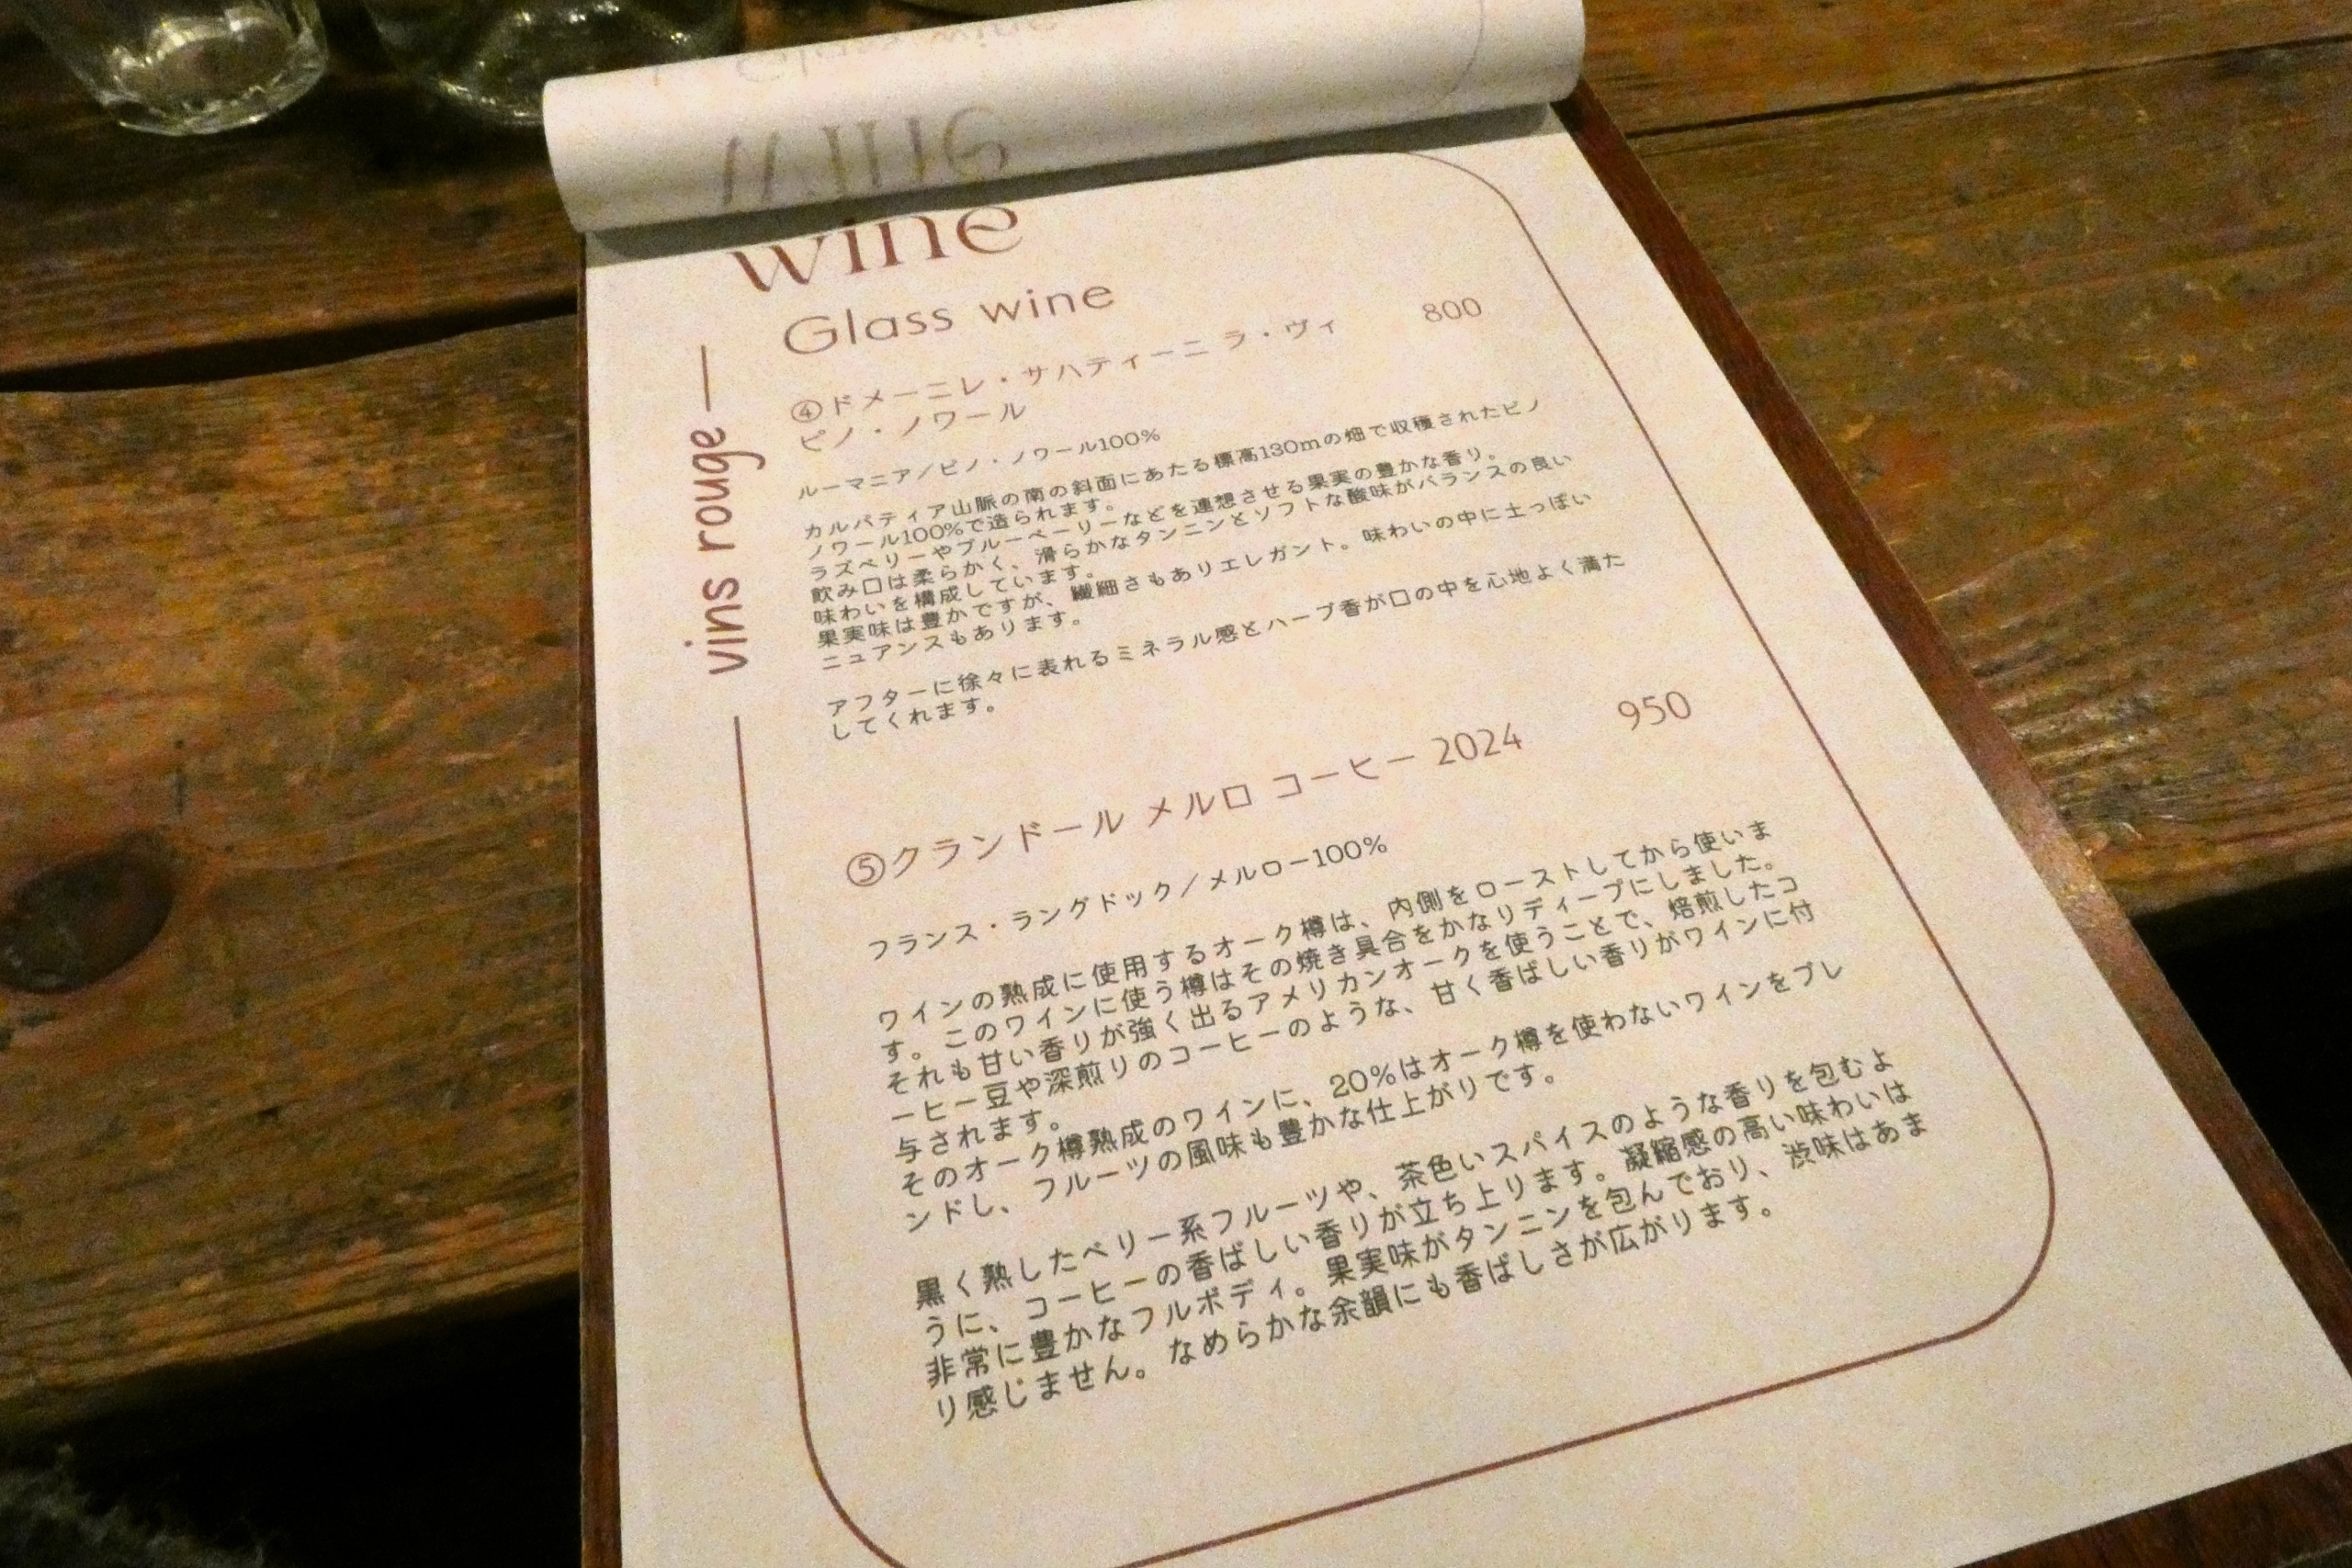 wine
Glass wine
vins rouge
④ドメーニレ・サハティーニ ラ・ヴィ 800
ピノ・ノワール
ルーマニア/ピノ・ノワール100%
カルパティア山脈の南の斜面にあたる標高130mの畑で収穫されたピノ
ノワール100%で造られます。
ラズベリーやブルーベーリーなどを連想させる果実の豊かな香り。
飲み口は柔らかく、滑らかなタンニンとソフトな酸味がバランスの良い
味わいを構成しています。
果実味は豊かですが、繊細さもありエレガント。味わいの中に土っぽい
ニュアンスもあります。
アフターに徐々に表れるミネラル感とハーブ香が口の中を心地よく満た
してくれます。
⑤クランドール メルロ コーヒー 2024 950
フランス・ラングドック/メルロー100%
ワインの熟成に使用するオーク樽は、内側をローストしてから使いま
す。このワインに使う樽はその焼き具合をかなりディープにしました。
それも甘い香りが強く出るアメリカンオークを使うことで、焙煎したコ
ーヒー豆や深煎りのコーヒーのような、甘く香ばしい香りがワインに付
与されます。
そのオーク樽熟成のワインに、20%はオーク樽を使わないワインをブレ
ンドし、フルーツの風味も豊かな仕上がりです。
黒く熟したベリー系フルーツや、茶色いスパイスのような香りを包むよ
うに、コーヒーの香ばしい香りが立ち上ります。凝縮感の高い味わいは
非常に豊かなフルボディ。果実味がタンニンを包んでおり、渋味はあま
り感じません。なめらかな余韻にも香ばしさが広がります。